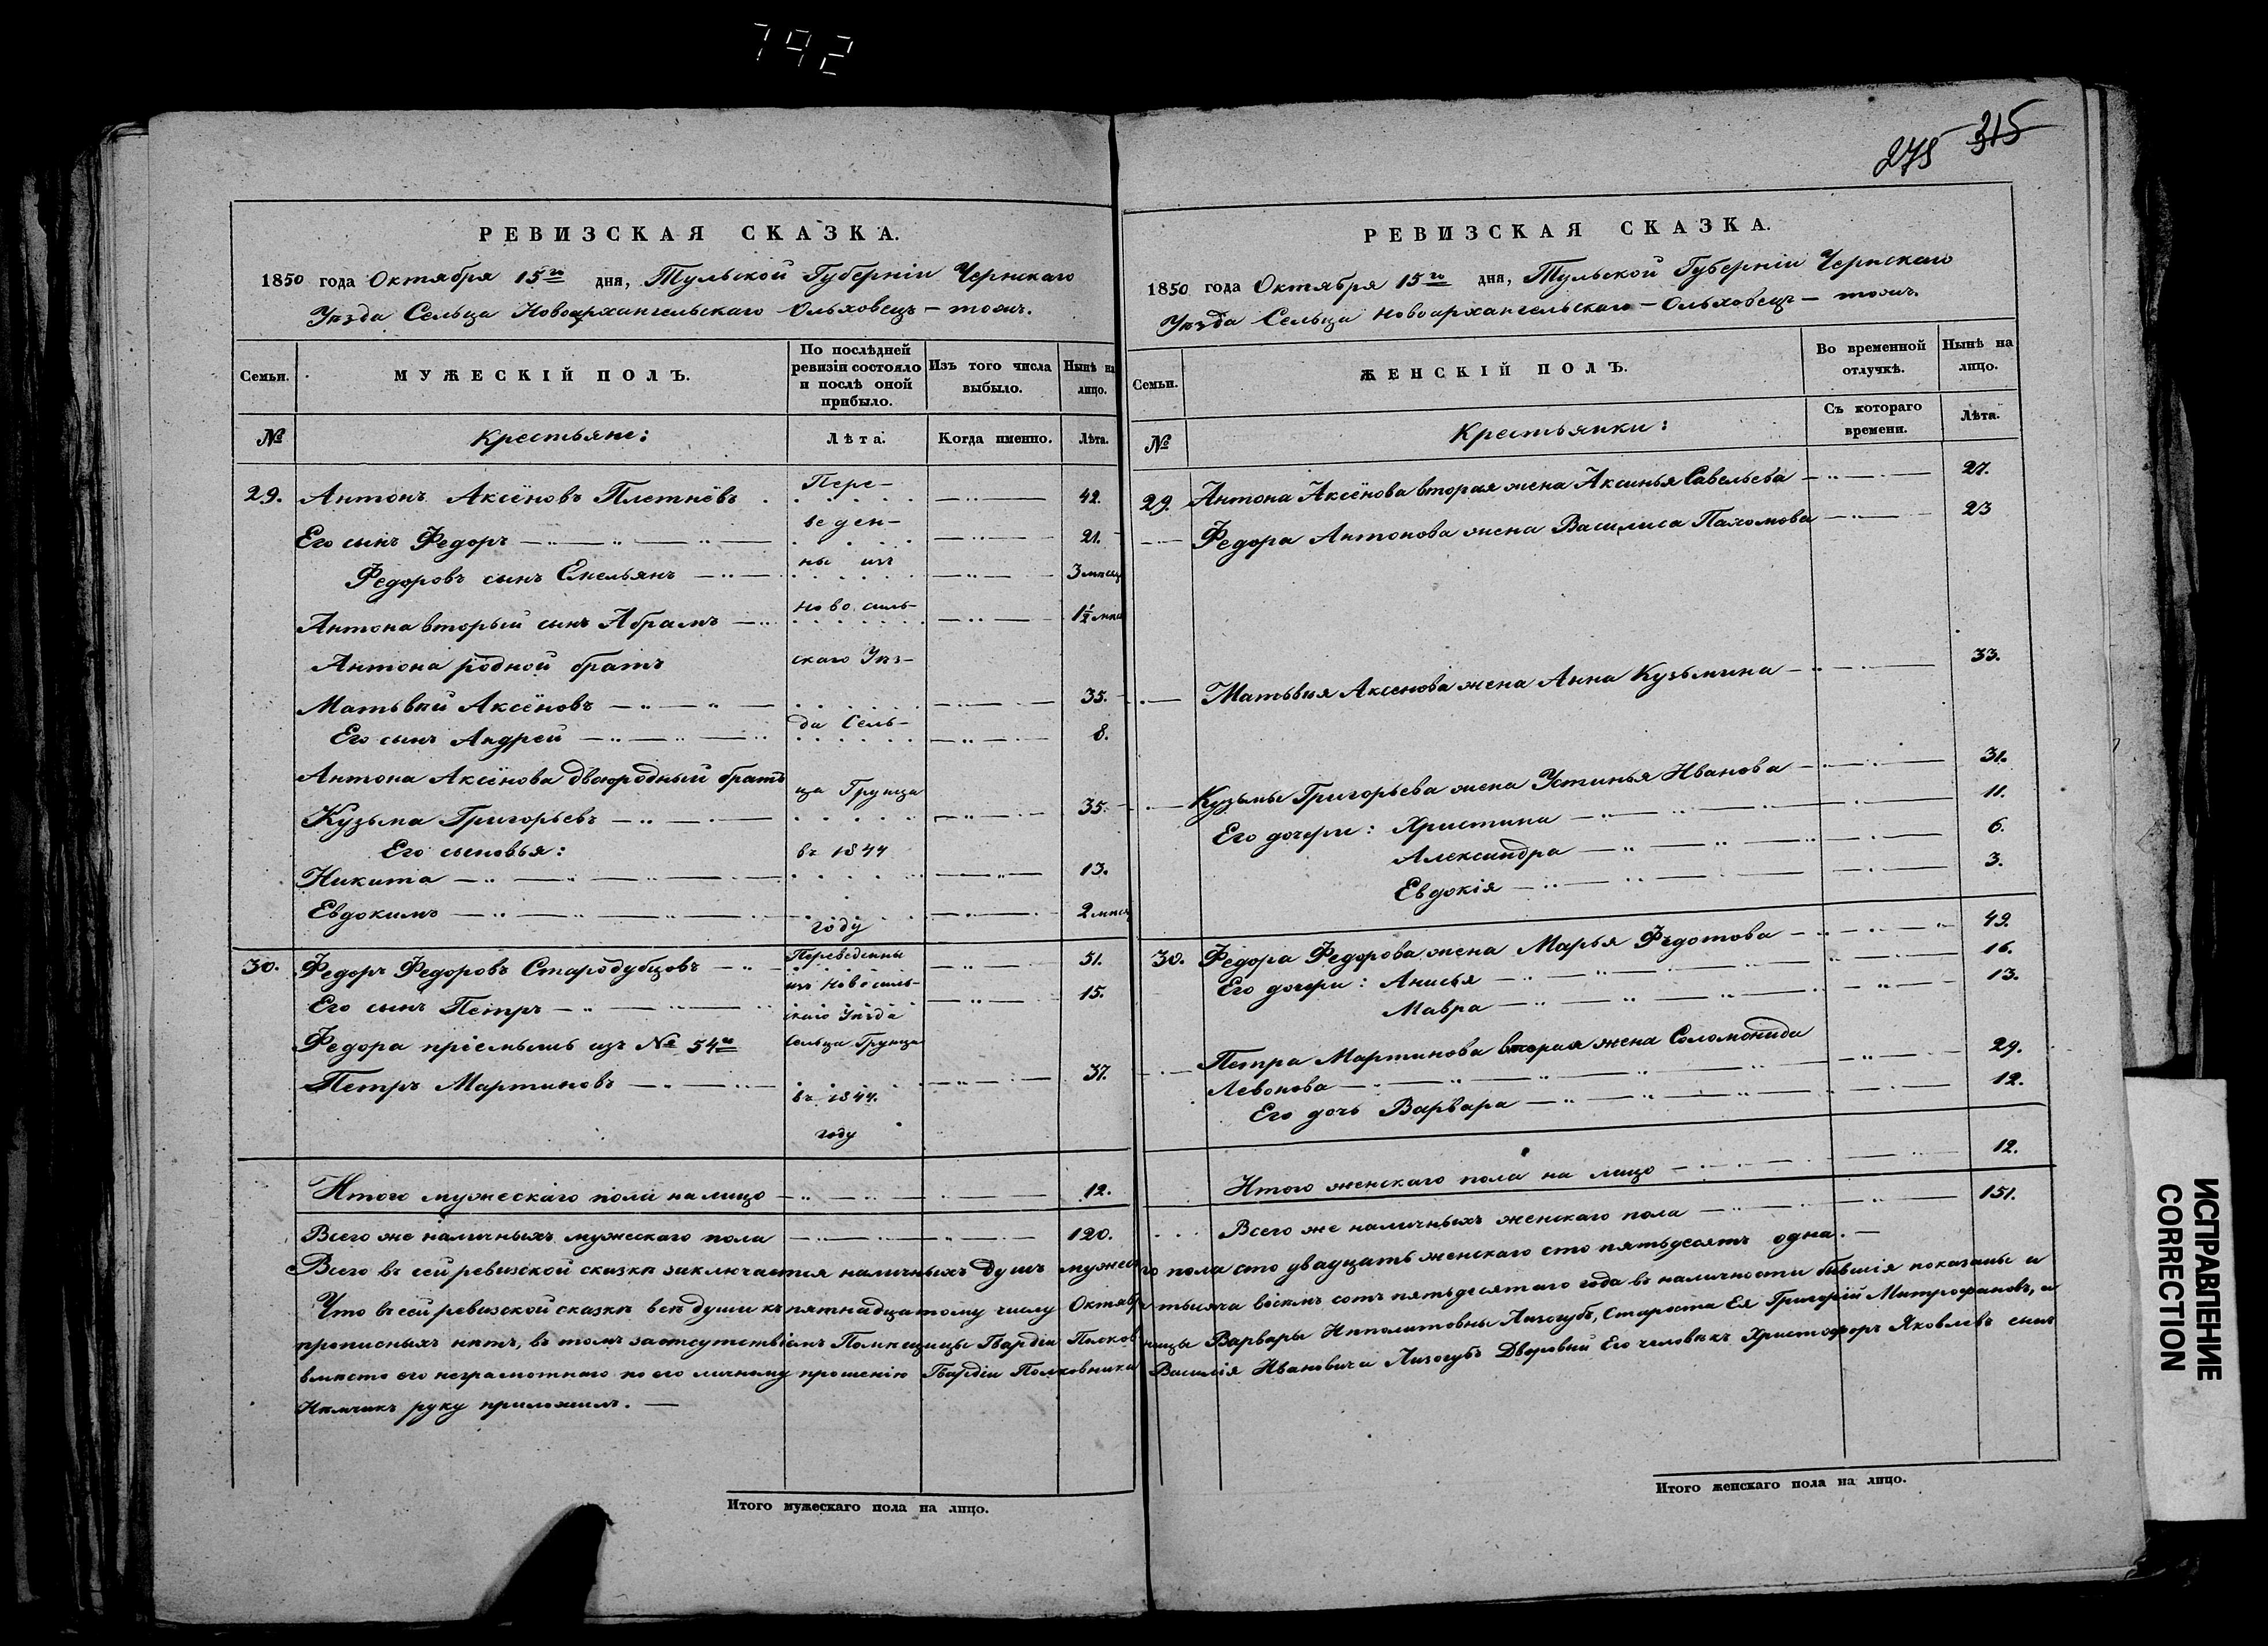 792
275 315
РЕВИЗСКАЯ СКАЗКА.
1850 года Октября 15го дня, Тульской Губерніи Чернскаго
Уѣзда Сельца Новоархангельскаго Ольховецъ – тожъ.
Семьи.
МУЖЕСКІЙ ПОЛЪ.
По послѣдней ревизіи состояло и послѣ оной прибыло.
Изъ того числа выбыло.
Нынѣ на лицо.
№
Крестьяне:
Лѣта.
Когда именно.
Лѣта.
29. Антонъ Аксёновъ Плетнёвъ Пере- 42.
Его сынъ Федоръ веден- 21.
Федоровъ сынъ Емельянъ ны изъ 3 мѣсяц
Антона вторый сынъ Абрамъ Новосиль- 1½ мѣс
Антона родной братъ скаго Уѣз-
Матьвѣй Аксёновъ 35.
Его сынъ Андрей да Сель- 8.
Антона Аксёнова двоюродный братъ ца Грунца
Кузьма Григорьевъ 35.
Его сыновья: въ 1844
Никита 13.
Евдокимъ году 2 мѣся
30. Федоръ Федоровъ Стародубцовъ Переведены 51.
Его сынъ Петръ изъ Новосиль- 15.
скаго Уѣзда
Федора пріемышъ изъ № 54го Сельца Грунца
Петръ Мартиновъ 37.
въ 1844.
году
Итого мужескаго пола на лицо 12.
Всего же наличныхъ мужескаго пола 120.
РЕВИЗСКАЯ СКАЗКА.
1850 года Октября 15го дня, Тульской Губерніи Чернскаго
Уѣзда Сельца Новоархангельскаго – Ольховецъ – тожъ.
Семьи.
ЖЕНСКІЙ ПОЛЪ.
Во временной отлучкѣ.
Нынѣ на лицо.
№
Крестьянки:
Съ котораго времени.
Лѣта.
29. Антона Аксёнова вторая жена Аксинья Савельева 27.
Федора Антонова жена Василиса Пахомова 23
Матьвѣя Аксенова жена Анна Кузьмина 33.
Кузьмы Григорьева жена Устинья Иванова 31.
Его дочери: Христина 11.
Александра 6.
Евдокія 3.
30. Федора Федорова жена Марья Ѳедотова 49.
Его дочери: Анисья 16.
Мавра 13.
Петра Мартинова вторая жена Соломонида
Левонова 29.
Его дочь Варвара 12.
Итого женскаго пола на лицо 12.
Всего же наличныхъ женскаго пола 151.
Всего въ сей ревизской сказкѣ заключается наличныхъ душъ мужескаго пола сто двадцать женскаго сто пятьдесятъ одна.
Что въ сей ревизской сказкѣ всѣ души къ пятнадцатому числу Октября тысяча восемь сотъ пятьдесятаго года въ наличности бывшія показаны и
прописныхъ нѣтъ, въ томъ за отсутствіемъ Помѣщицы Гвардіи Полковницы Варвары Ипполитовны Лизогубъ, Староста Ея Григорій Митрофановъ, а
вмѣсто его неграмотнаго по его личному прошенію Гвардіи Полковника Василія Ивановича Лизогубъ Дворовый Его человѣкъ Христофоръ Яковлевъ сынъ
Нѣмчикъ руку приложилъ.
Итого мужескаго пола на лицо.
Итого женскаго пола на лицо.
ИСПРАВЛЕНИЕ
CORRECTION